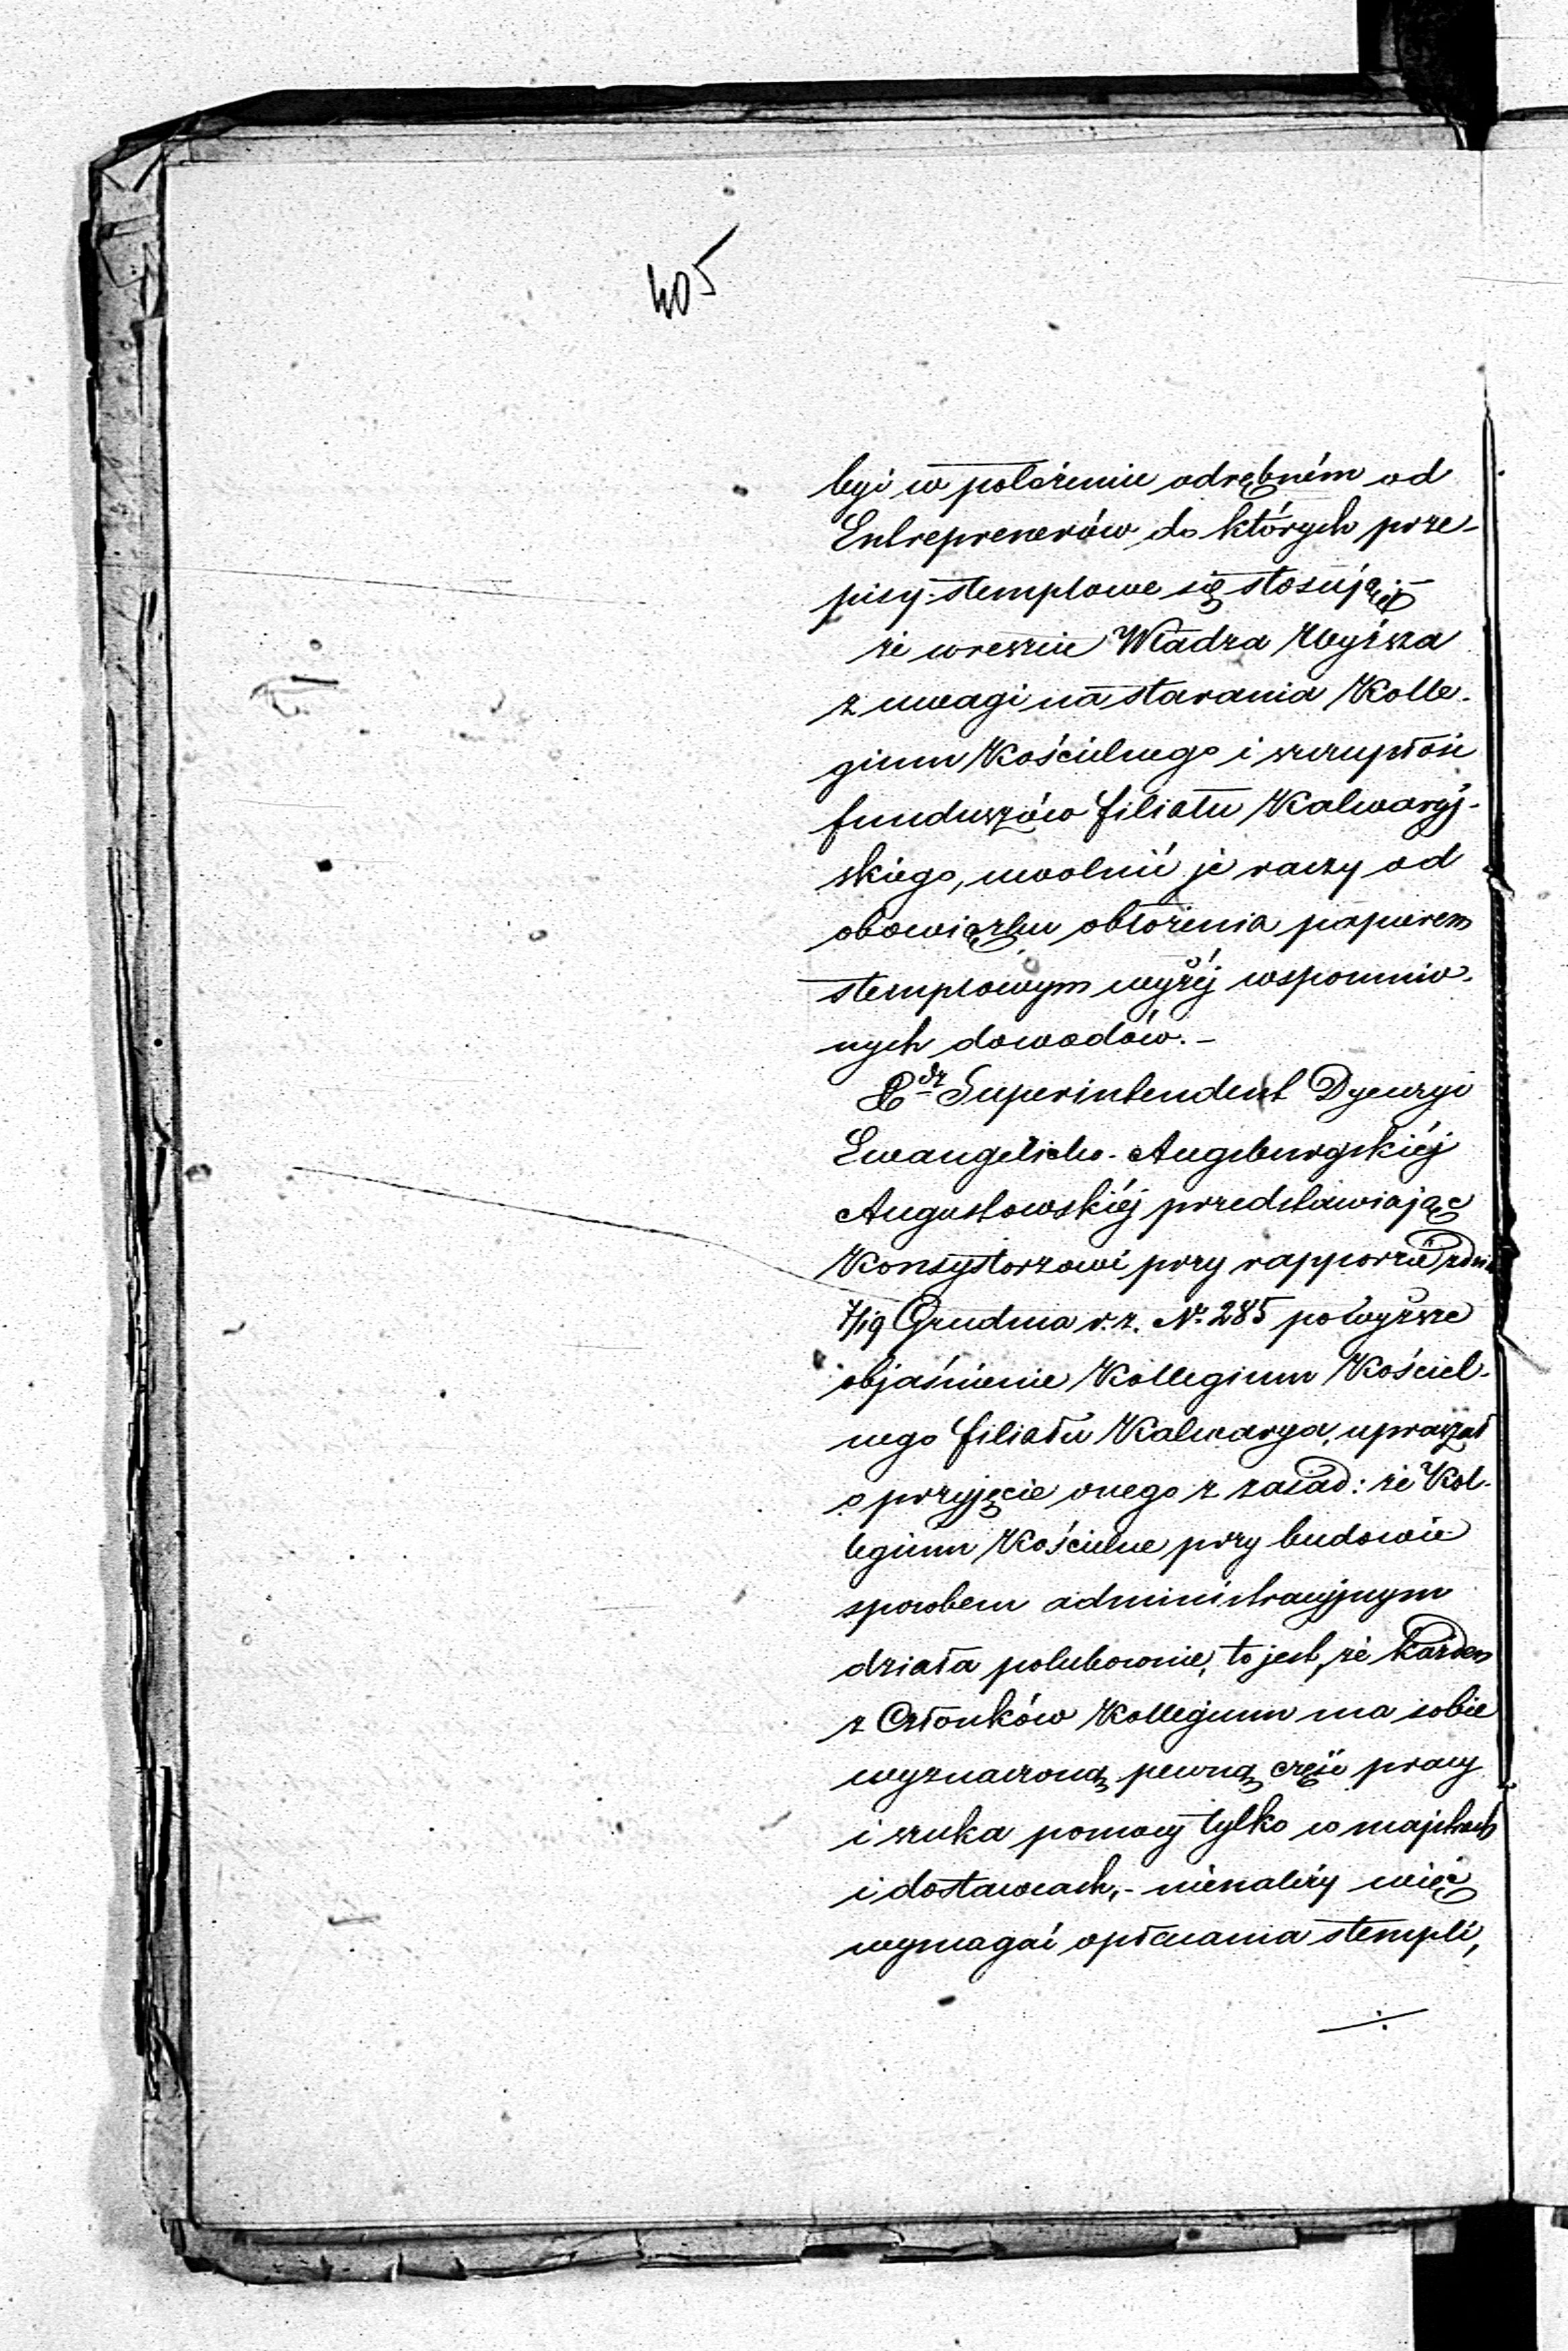 405
być w położeniu odrębném od
Entreprenerów do których prze-
pisy stemplowe się stosują; –
że wreszcie Władza Wyższa
z uwagi na starania Kolle-
gium Kościelnego i szczupłość
funduszów filiału Kalwaryj-
skiego, uwolnić je raczy od
obowiązku obłożenia papierem
stemplowym wyżéj wspomnio-
nych dowodów. –
Xdz Superintendent Dyecezyi
Ewangelicko-Augsburgskiéj
Augustowskiéj przedstawiając
Konsystorzowi przy rapporcie z dnia
7/19 Grudnia r. z. № 285 powyższe
objaśnienie Kollegium Kościel-
nego filiału Kalwarya, upraszał
o przyjęcie onego z zasad: że Kol-
legium Kościelne przy budowie
sposobem administracyjnym
działa polubownie, to jest, że każden
z Członków Kollegium ma sobie
wyznaczoną pewną część pracy
i szuka pomocy tylko w majstrach
i dostawcach, – nienależy więc
wymagać opłacania stempli,
÷